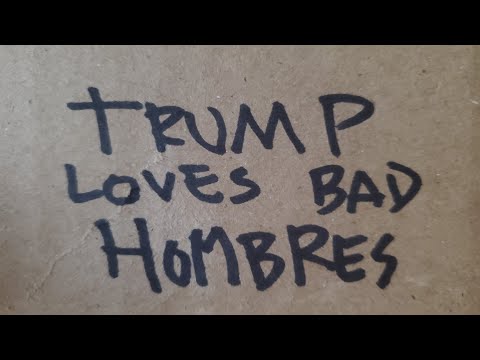 TRUMP
LOVES BAD
HOMBRES